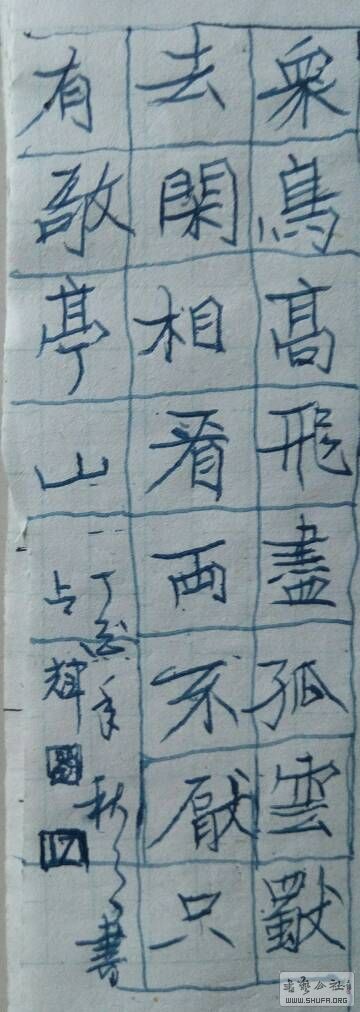 衆鳥高飛盡孤雲獨
去閑相看兩不厭只
有敬亭山
丁酉年秋 書
占輝
書藝公社
WWW.SHUFA.ORG